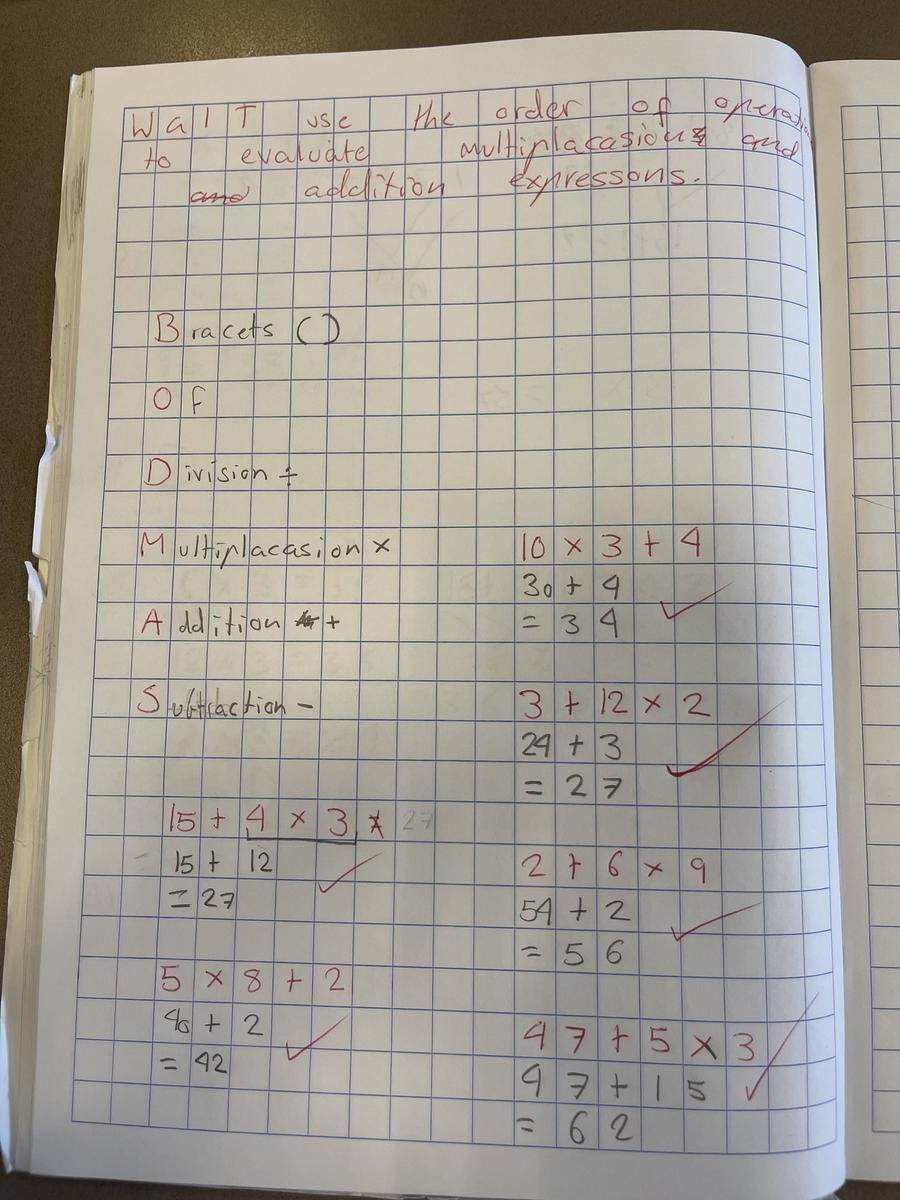 WalT use the order of operati
to evaluate multiplacasion and
addition expressons.
Bracets ()
Of
Division ÷
Multiplacasion ×
Addition +
Subtraction -
10 × 3 + 4
30 + 4
= 34
3 + 12 × 2
24 + 3
= 27
15 + 4 × 3 27
15 + 12
= 27
2 + 6 × 9
54 + 2
= 56
5 × 8 + 2
40 + 2
= 42
47 + 5 × 3
47 + 15
= 62